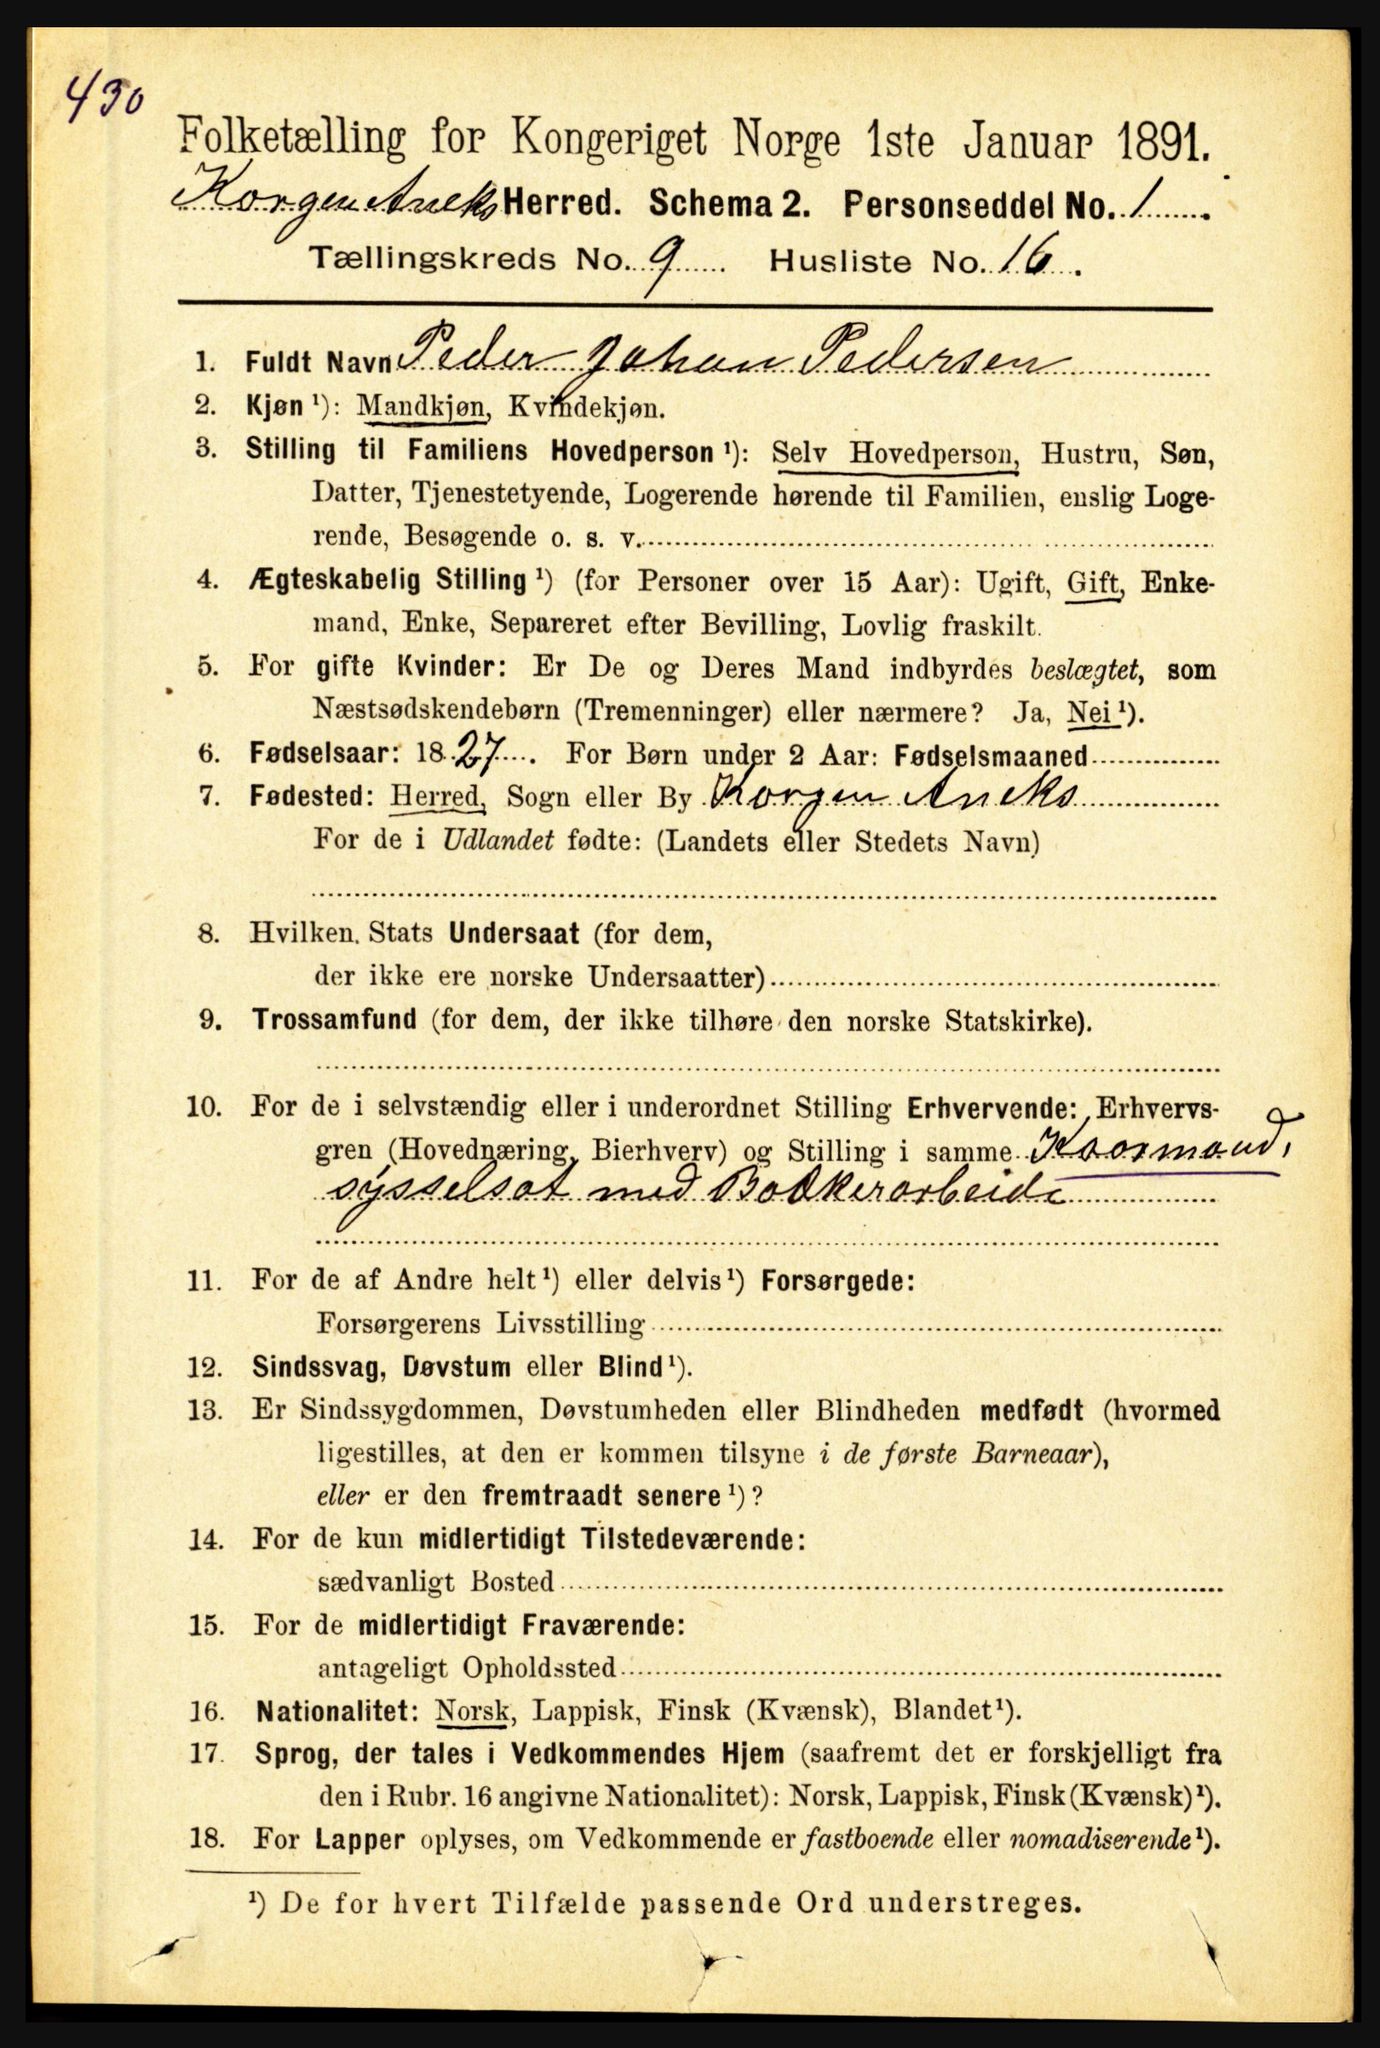 430
Folketælling for Kongeriget Norge 1ste Januar 1891.
Korgen Aneks Herred. Schema 2. Personseddel No. 1
Tællingskreds No. 9 Husliste No. 16.
1. Fuldt Navn Peder Johan Pedersen
2. Kjøn ¹): Mandkjøn, Kvindekjøn.
3. Stilling til Familiens Hovedperson ¹): Selv Hovedperson, Hustru, Søn,
Datter, Tjenestetyende, Logerende hørende til Familien, enslig Loge-
rende, Besøgende o. s. v.
4. Ægteskabelig Stilling ¹) (for Personer over 15 Aar): Ugift, Gift, Enke-
mand, Enke, Separeret efter Bevilling, Lovlig fraskilt.
5. For gifte Kvinder: Er De og Deres Mand indbyrdes beslægtet, som
Næstsødskendebørn (Tremenninger) eller nærmere? Ja, Nei ¹).
6. Fødselsaar: 1827. For Børn under 2 Aar: Fødselsmaaned
7. Fødested: Herred, Sogn eller By Korgen Aneks
For de i Udlandet fødte: (Landets eller Stedets Navn)
8. Hvilken Stats Undersaat (for dem,
der ikke ere norske Undersaatter)
9. Trossamfund (for dem, der ikke tilhøre den norske Statskirke).
10. For de i selvstændig eller i underordnet Stilling Erhvervende: Erhvervs-
gren (Hovednæring, Bierhverv) og Stilling i samme Kaarmand,
sysselsat med Bødkerarbeide
11. For de af Andre helt ¹) eller delvis ¹) Forsørgede:
Forsørgerens Livsstilling
12. Sindssvag, Døvstum eller Blind ¹).
13. Er Sindssygdommen, Døvstumheden eller Blindheden medfødt (hvormed
ligestilles, at den er kommen tilsyne i de første Barneaar),
eller er den fremtraadt senere ¹)?
14. For de kun midlertidigt Tilstedeværende:
sædvanligt Bosted
15. For de midlertidigt Fraværende:
antageligt Opholdssted
16. Nationalitet: Norsk, Lappisk, Finsk (Kvænsk), Blandet ¹).
17. Sprog, der tales i Vedkommendes Hjem (saafremt det er forskjelligt fra
den i Rubr. 16 angivne Nationalitet): Norsk, Lappisk, Finsk (Kvænsk) ¹).
18. For Lapper oplyses, om Vedkommende er fastboende eller nomadiserende ¹).
¹) De for hvert Tilfælde passende Ord understreges.